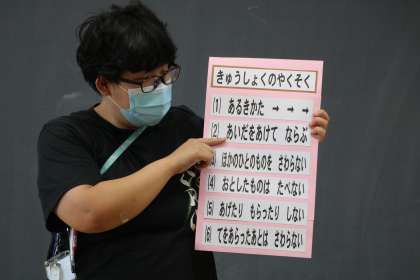 きゅうしょくのやくそく
(1) あるきかた → → →
(2) あいだをあけて ならぶ
(3) ほかのひとのものを さわらない
(4) おとしたものは たべない
(5) あげたり もらったり しない
(6) てをあらったあとは さわらない